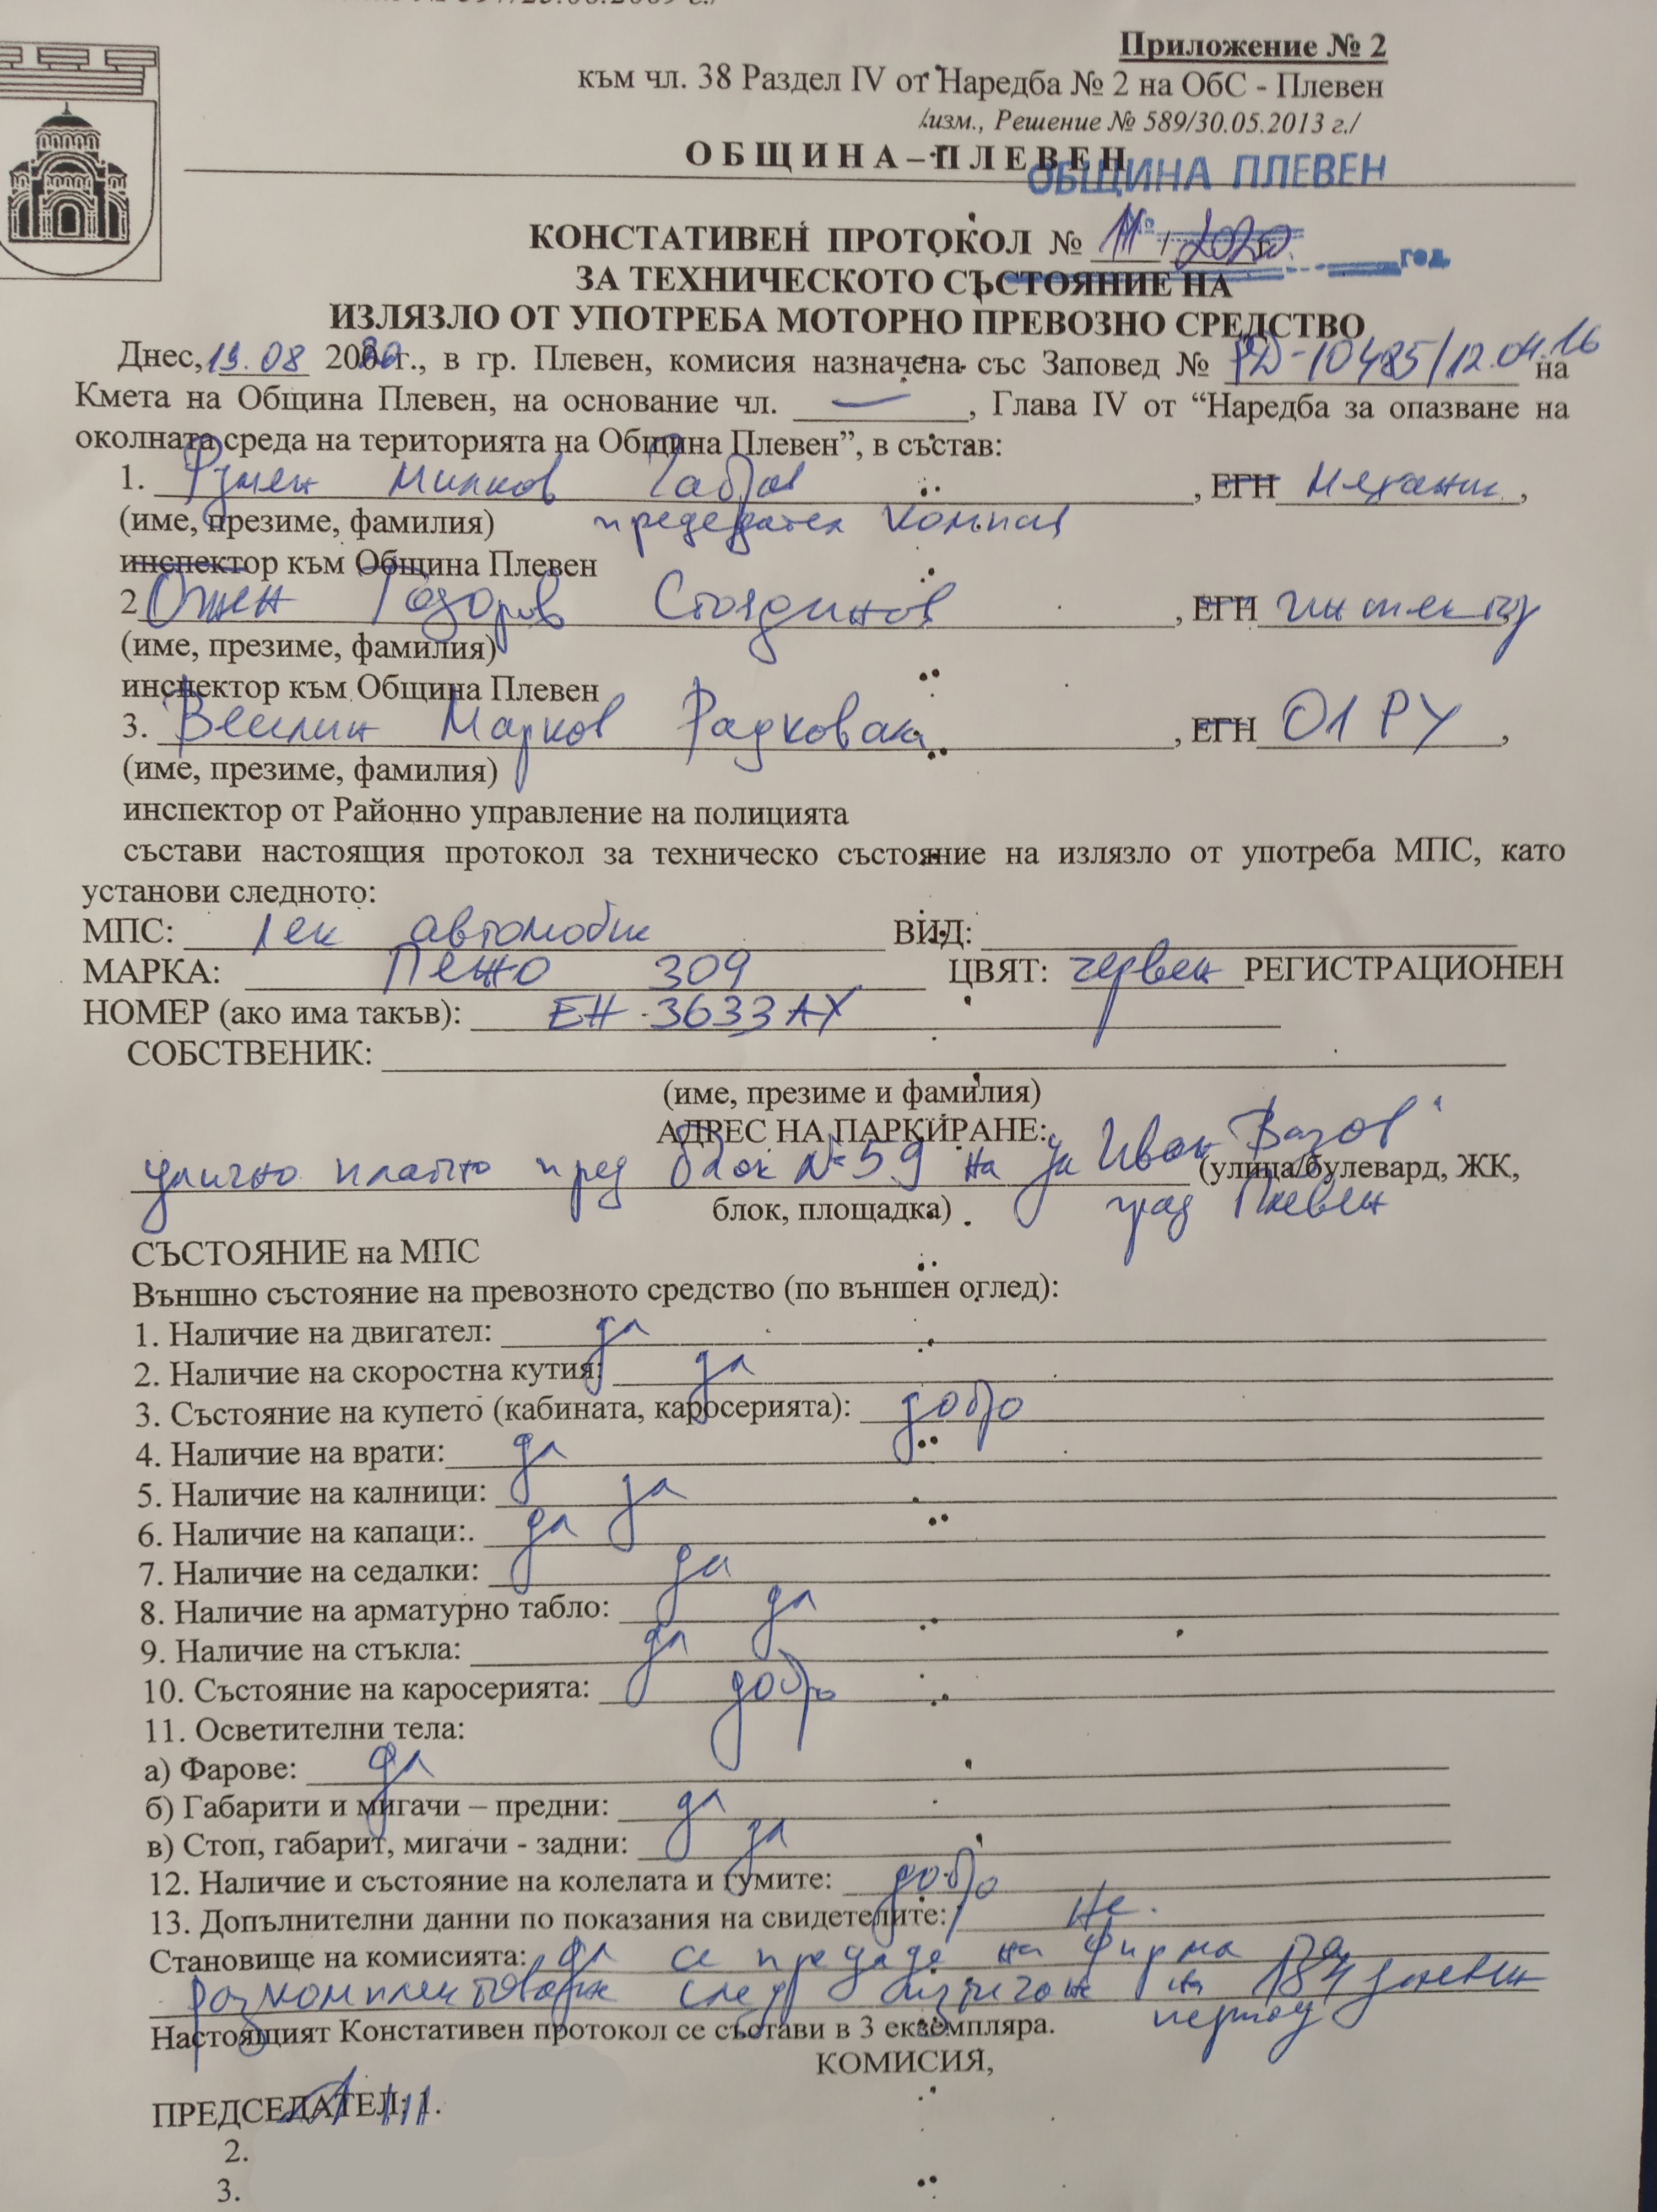 Приложение № 2
към чл. 38 Раздел IV от Наредба № 2 на ОбС - Плевен
/изм., Решение № 589/30.05.2013 г./
ОБЩИНА – ПЛЕВЕН
ОБЩИНА ПЛЕВЕН
КОНСТАТИВЕН ПРОТОКОЛ № 11 / 2020г.
год.
ЗА ТЕХНИЧЕСКОТО СЪСТОЯНИЕ НА
ИЗЛЯЗЛО ОТ УПОТРЕБА МОТОРНО ПРЕВОЗНО СРЕДСТВО
Днес, 19.08 2020г., в гр. Плевен, комисия назначена със Заповед № РД-10485/12.04.16 на
Кмета на Община Плевен, на основание чл. —, Глава IV от “Наредба за опазване на
околната среда на територията на Община Плевен”, в състав:
1. Румен Милков, ЕГН Механик,
(име, презиме, фамилия) председател комисия
инспектор към Община Плевен
2 Огнян Тодоров Стояджинов, ЕГН инспектор
(име, презиме, фамилия)
инспектор към Община Плевен
3. Веселин Марков, ЕГН 01 РУ,
(име, презиме, фамилия)
инспектор от Районно управление на полицията
състави настоящия протокол за техническо състояние на излязло от употреба МПС, като
установи следното:
МПС: лек автомобил ВИД:
МАРКА: Пежо 309 ЦВЯТ: червен РЕГИСТРАЦИОНЕН
НОМЕР (ако има такъв): ЕН 3633 АХ
СОБСТВЕНИК:
(име, презиме и фамилия)
АДРЕС НА ПАРКИРАНЕ:
улично платно пред блок №59 на ул Иван Вазов" (улица/булевард, ЖК,
блок, площадка) град Плевен
СЪСТОЯНИЕ на МПС
Външно състояние на превозното средство (по външен оглед):
1. Наличие на двигател: да
2. Наличие на скоростна кутия: да
3. Състояние на купето (кабината, каросерията): добро
4. Наличие на врати: да
5. Наличие на калници: да
6. Наличие на капаци:. да
7. Наличие на седалки: да
8. Наличие на арматурно табло: да
9. Наличие на стъкла: да
10. Състояние на каросерията: добро
11. Осветителни тела:
а) Фарове: да
б) Габарити и мигачи – предни: да
в) Стоп, габарит, мигачи - задни: да
12. Наличие и състояние на колелата и гумите: добро
13. Допълнителни данни по показания на свидетелите: Не.
Становище на комисията: да се предаде на фирма за
разкомплектоване след изтичане на 184 дневен
период
Настоящият Констативен протокол се състави в 3 екземпляра.
КОМИСИЯ,
ПРЕДСЕДАТЕЛ: 1.
2.
3.